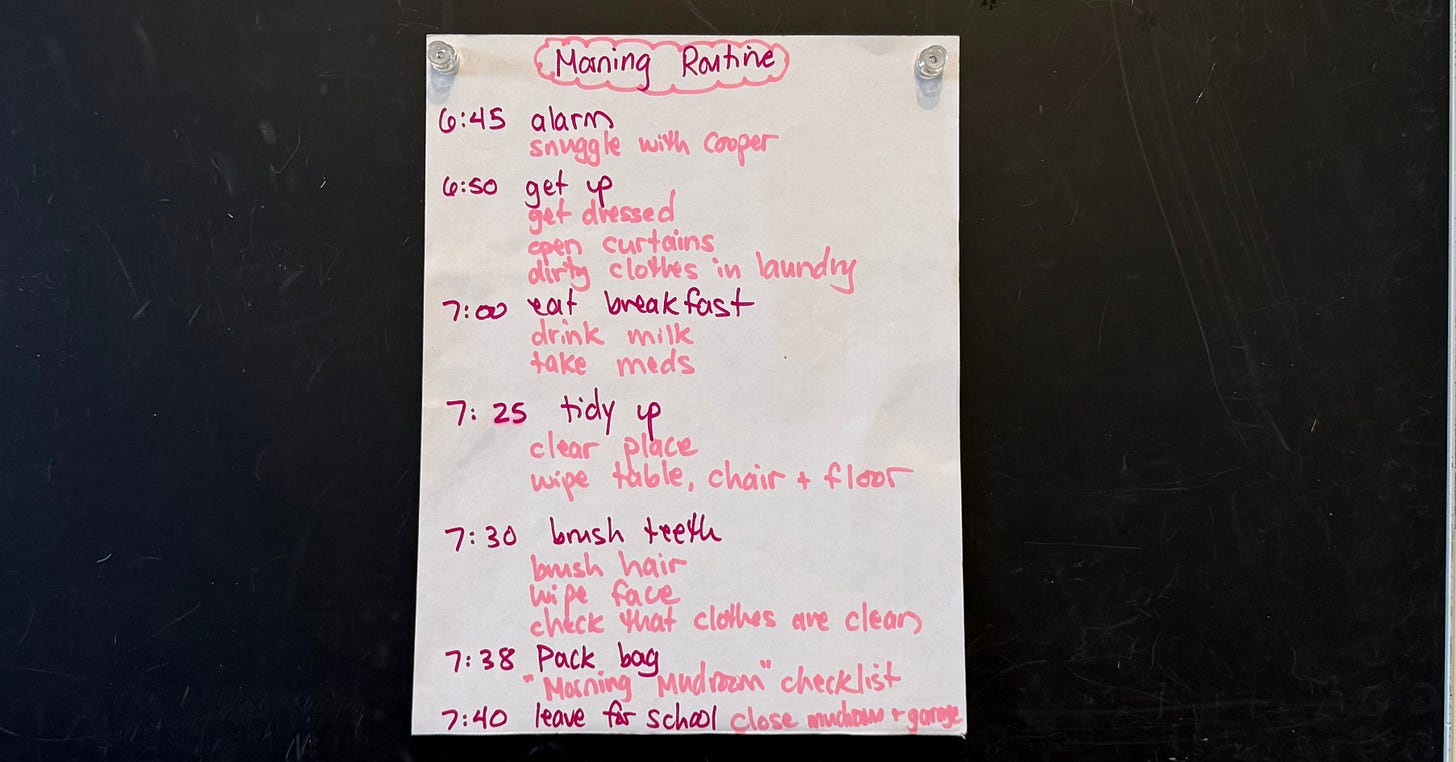 Morning Routine
6:45 alarm
snuggle with Cooper
6:50 get up
get dressed
open curtains
dirty clothes in laundry
7:00 eat breakfast
drink milk
take meds
7:25 tidy up
clear place
wipe table, chair + floor
7:30 brush teeth
brush hair
wipe face
check that clothes are clean
7:38 Pack bag
"Morning Mudroom" checklist
7:40 leave for school close mudroom + garage